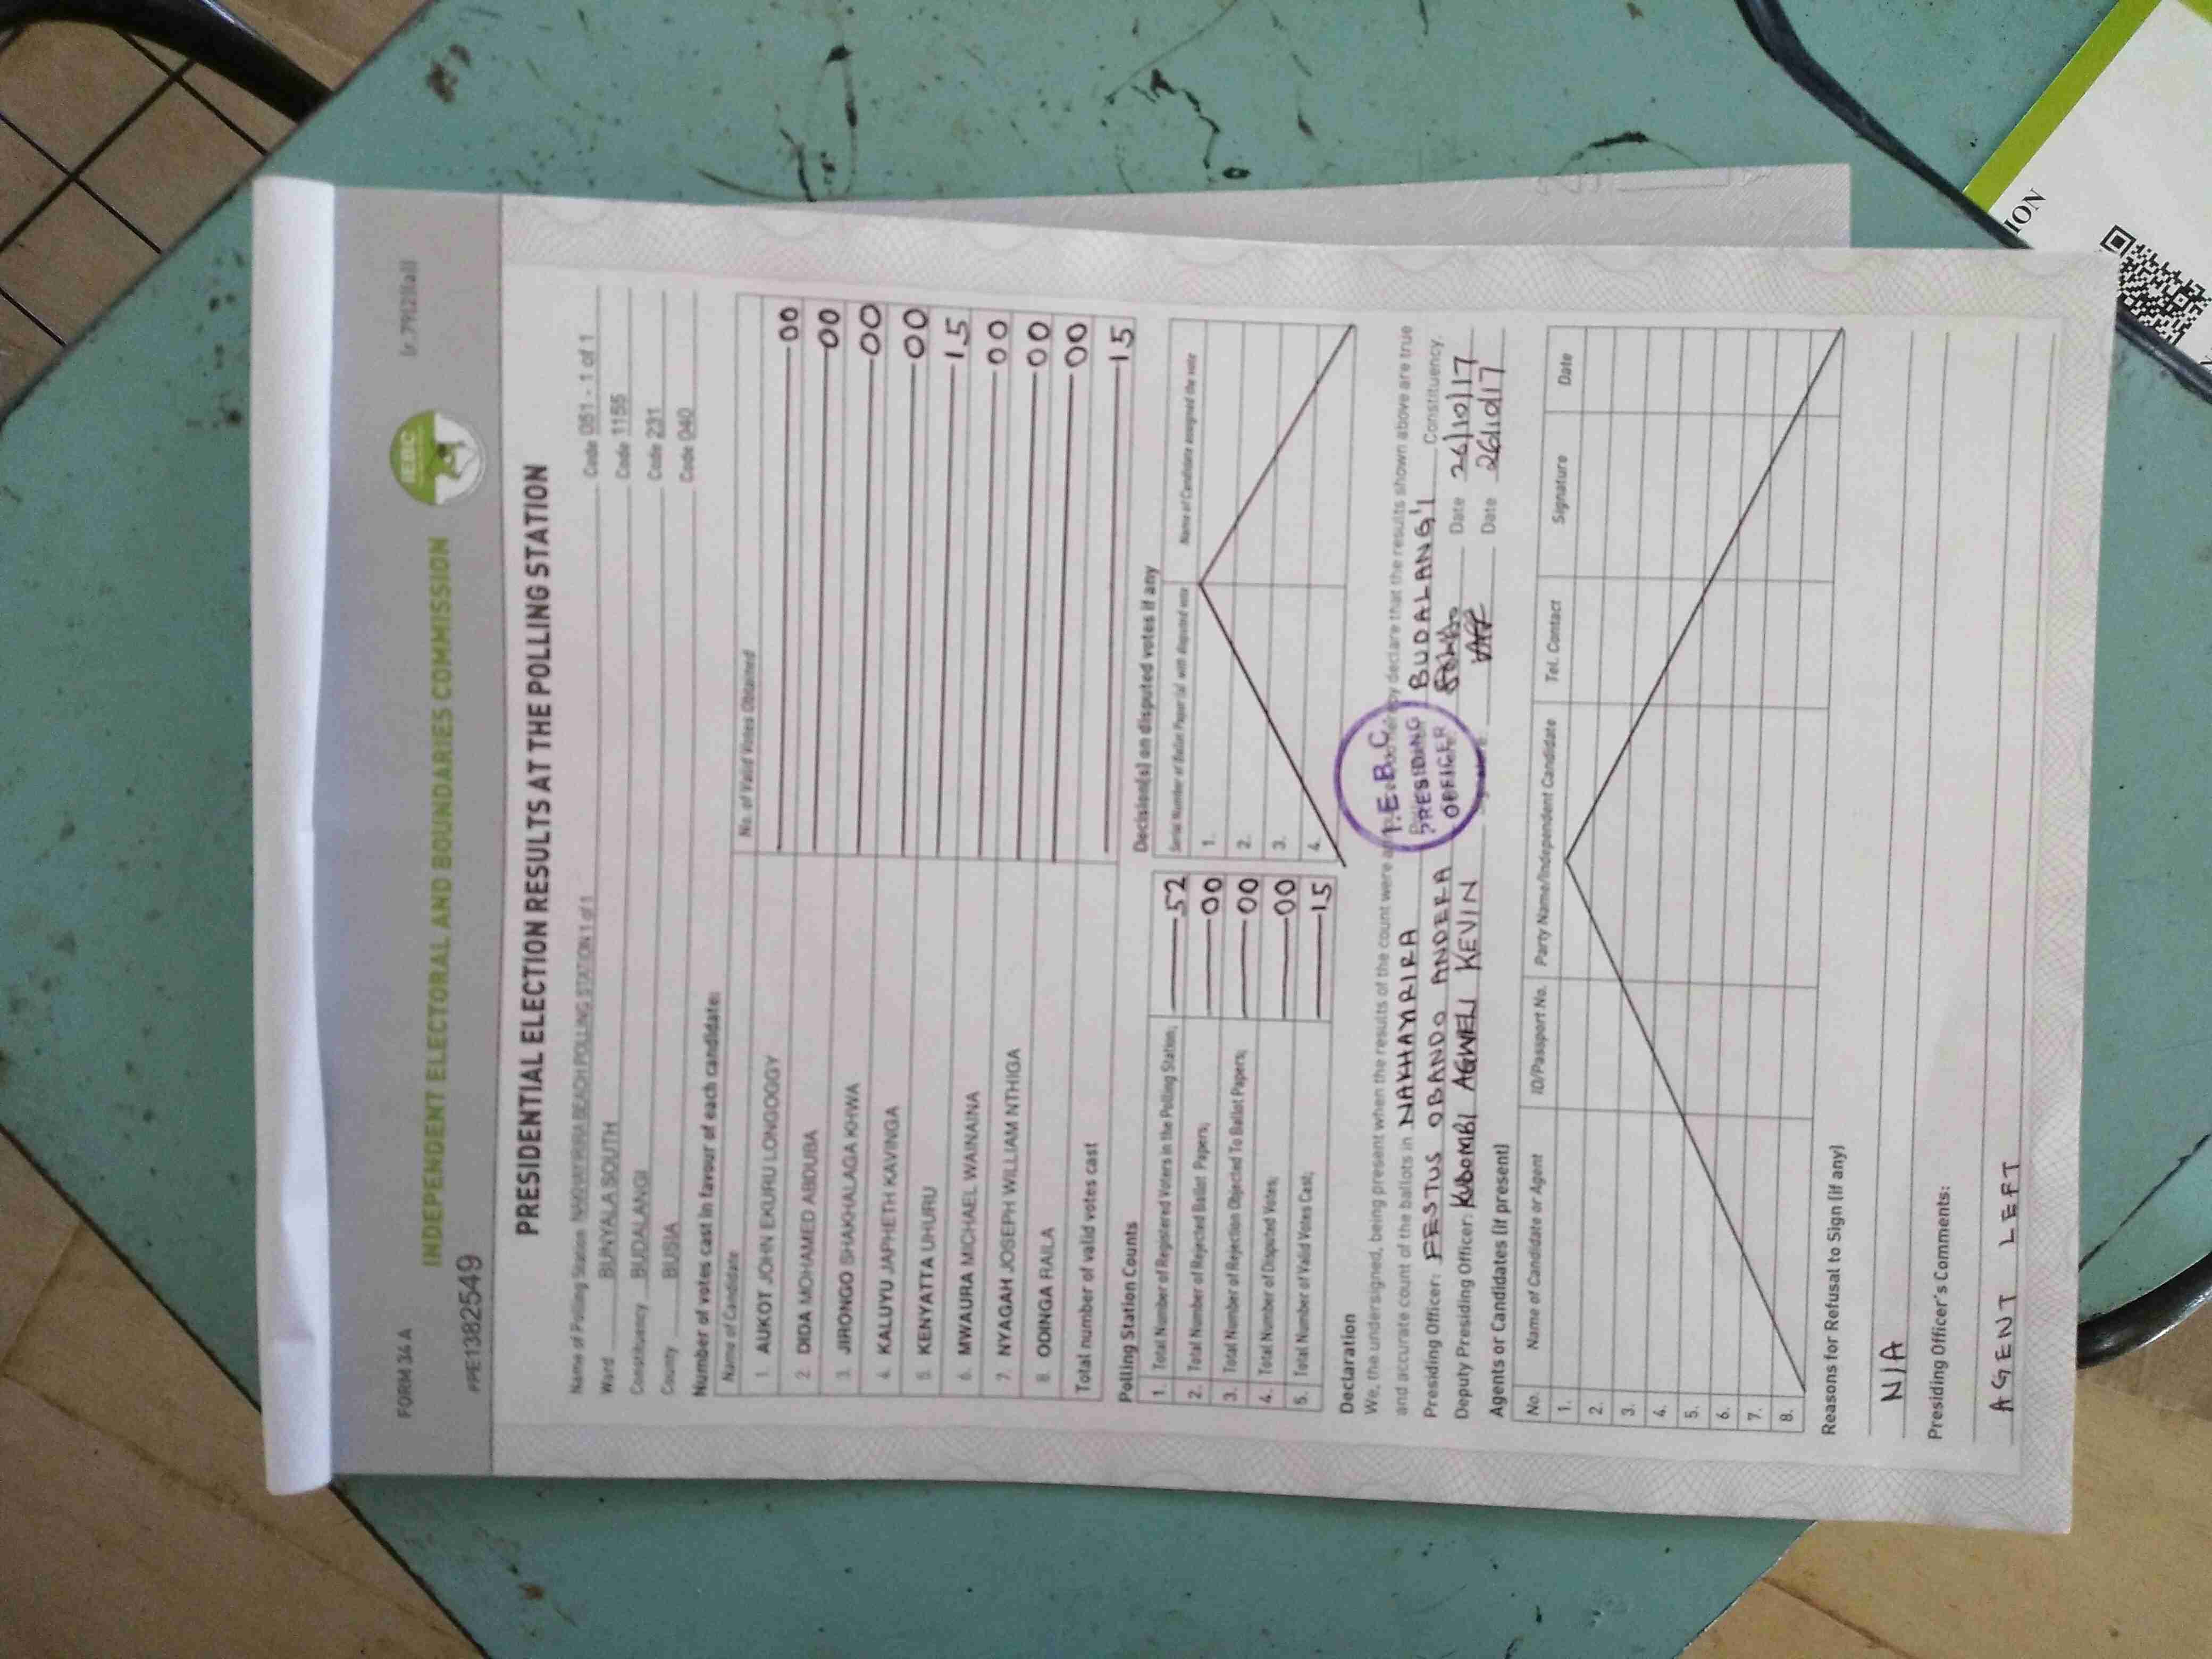 FORM 34 A
(r.79(2)(a))
INDEPENDENT ELECTORAL AND BOUNDARIES COMMISSION
IEBC
#PE1382549
PRESIDENTIAL ELECTION RESULTS AT THE POLLING STATION
Name of Polling Station NAKHAYRIRA BEACH POLLING STATION 1 of 1 Code 051 - 1 of 1
Ward BUNYALA SOUTH Code 1155
Constituency BUDALANGI Code 231
County BUSIA Code 040
Number of votes cast in favour of each candidate:
Name of Candidate No. of Valid Votes Obtained
1. AUKOT JOHN EKURU LONGOGGY 00
2. DIDA MOHAMED ABDUBA 00
3. JIRONGO SHAKHALAGA KHWA 00
4. KALUYU JAPHETH KAVINGA 00
5. KENYATTA UHURU 15
6. MWAURA MICHAEL WAINAINA 00
7. NYAGAH JOSEPH WILLIAM NTHIGA 00
8. ODINGA RAILA 00
Total number of valid votes cast 15
Polling Station Counts
1. Total Number of Registered Voters in the Polling Station; 52
2. Total Number of Rejected Ballot Papers; 00
3. Total Number of Rejection Objected To Ballot Papers; 00
4. Total Number of Disputed Votes; 00
5. Total Number of Valid Votes Cast; 15
Decision(s) on disputed votes if any
Serial Number of Ballot Paper (s) with disputed vote Name of Candidate assigned the vote
1.
2.
3.
4.
Declaration
We, the undersigned, being present when the results of the count were do hereby declare that the results shown above are true
and accurate count of the ballots in NAKHAYRIRA BUDALANG'I Constituency.
Presiding Officer: FESTUS OBANDO ANDERA Date 26/10/17
Deputy Presiding Officer: KUBOMBI AGWELI KEVIN Date 26/10/17
I.E.B.C
PRESIDING
OFFICER
Agents or Candidates (if present)
No. Name of Candidate or Agent ID/Passport No. Party Name/Independent Candidate Tel. Contact Signature Date
1.
2.
3.
4.
5.
6.
7.
8.
Reasons for Refusal to Sign (if any)
N/A
Presiding Officer's Comments:
AGENT LEFT
ION